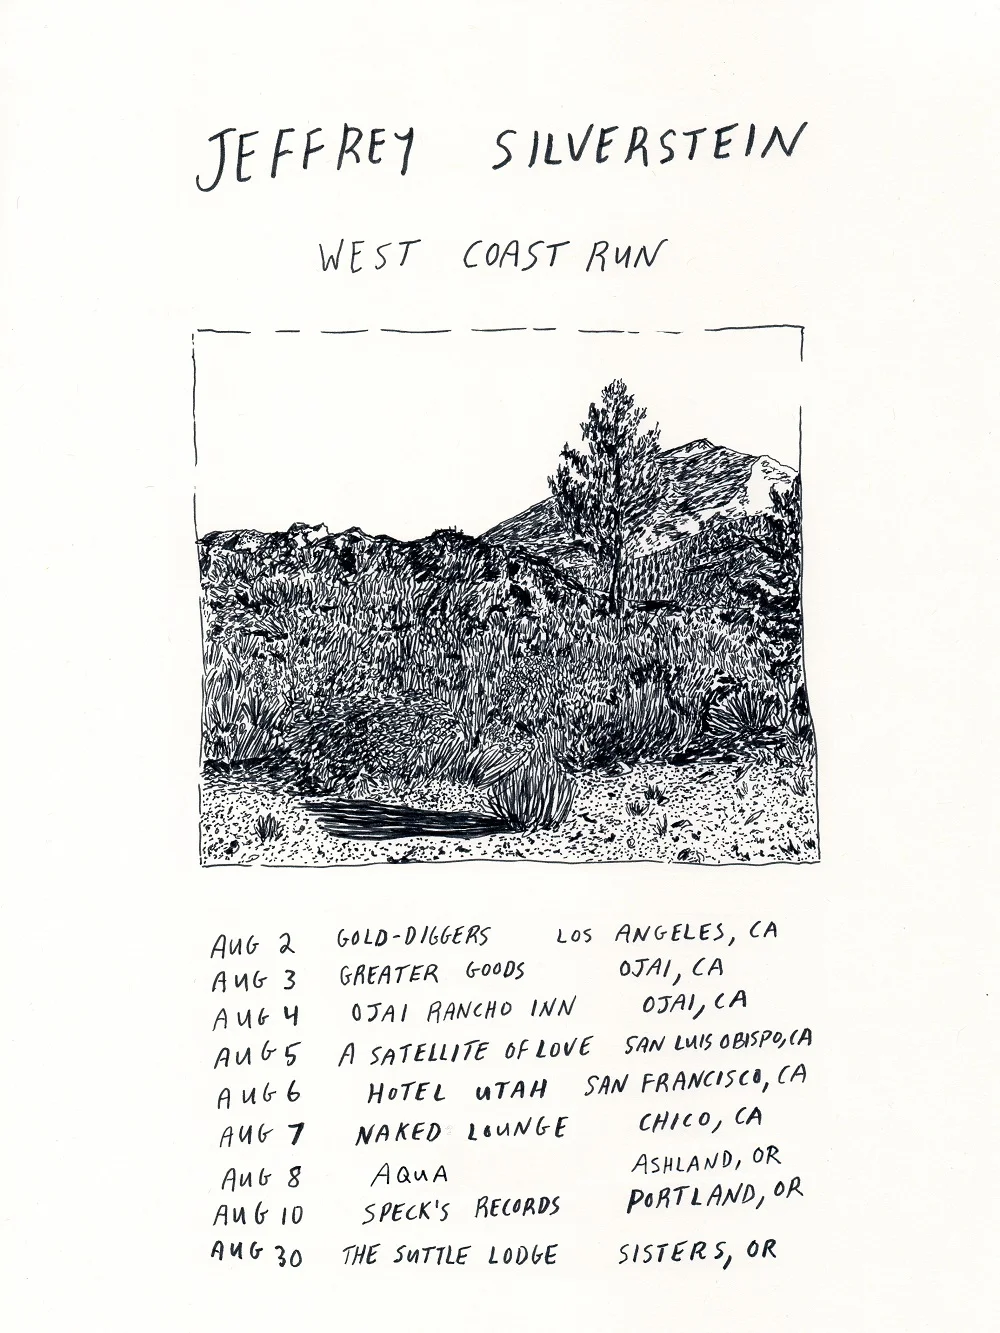 JEFFREY SILVERSTEIN
WEST COAST RUN
AUG 2 GOLD-DIGGERS LOS ANGELES, CA
AUG 3 GREATER GOODS OJAI, CA
AUG 4 OJAI RANCHO INN OJAI, CA
AUG 5 A SATELLITE OF LOVE SAN LUIS OBISPO, CA
AUG 6 HOTEL UTAH SAN FRANCISCO, CA
AUG 7 NAKED LOUNGE CHICO, CA
AUG 8 AQUA ASHLAND, OR
AUG 10 SPECK'S RECORDS PORTLAND, OR
AUG 30 THE SUTTLE LODGE SISTERS, OR